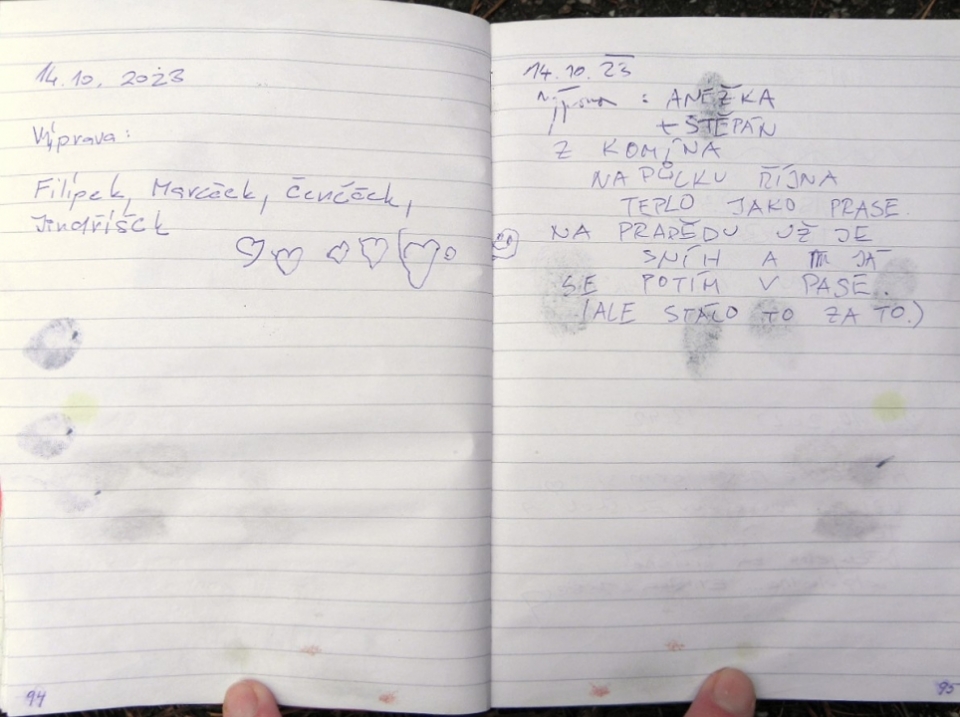 14.10. 2023
Výprava:
Filípek, Mareček, Čeněček,
Jindříšek
94
14.10.23
Výprava : ANEŽKA
+ ŠTĚPÁN
Z KOMÍNA
NA PŮLKU ŘÍJNA
TEPLO JAKO PRASE.
NA PRADĚDU UŽ JE
SNÍH A JÁ
SE POTÍM V PASE.
(ALE STÁLO TO ZA TO.)
95